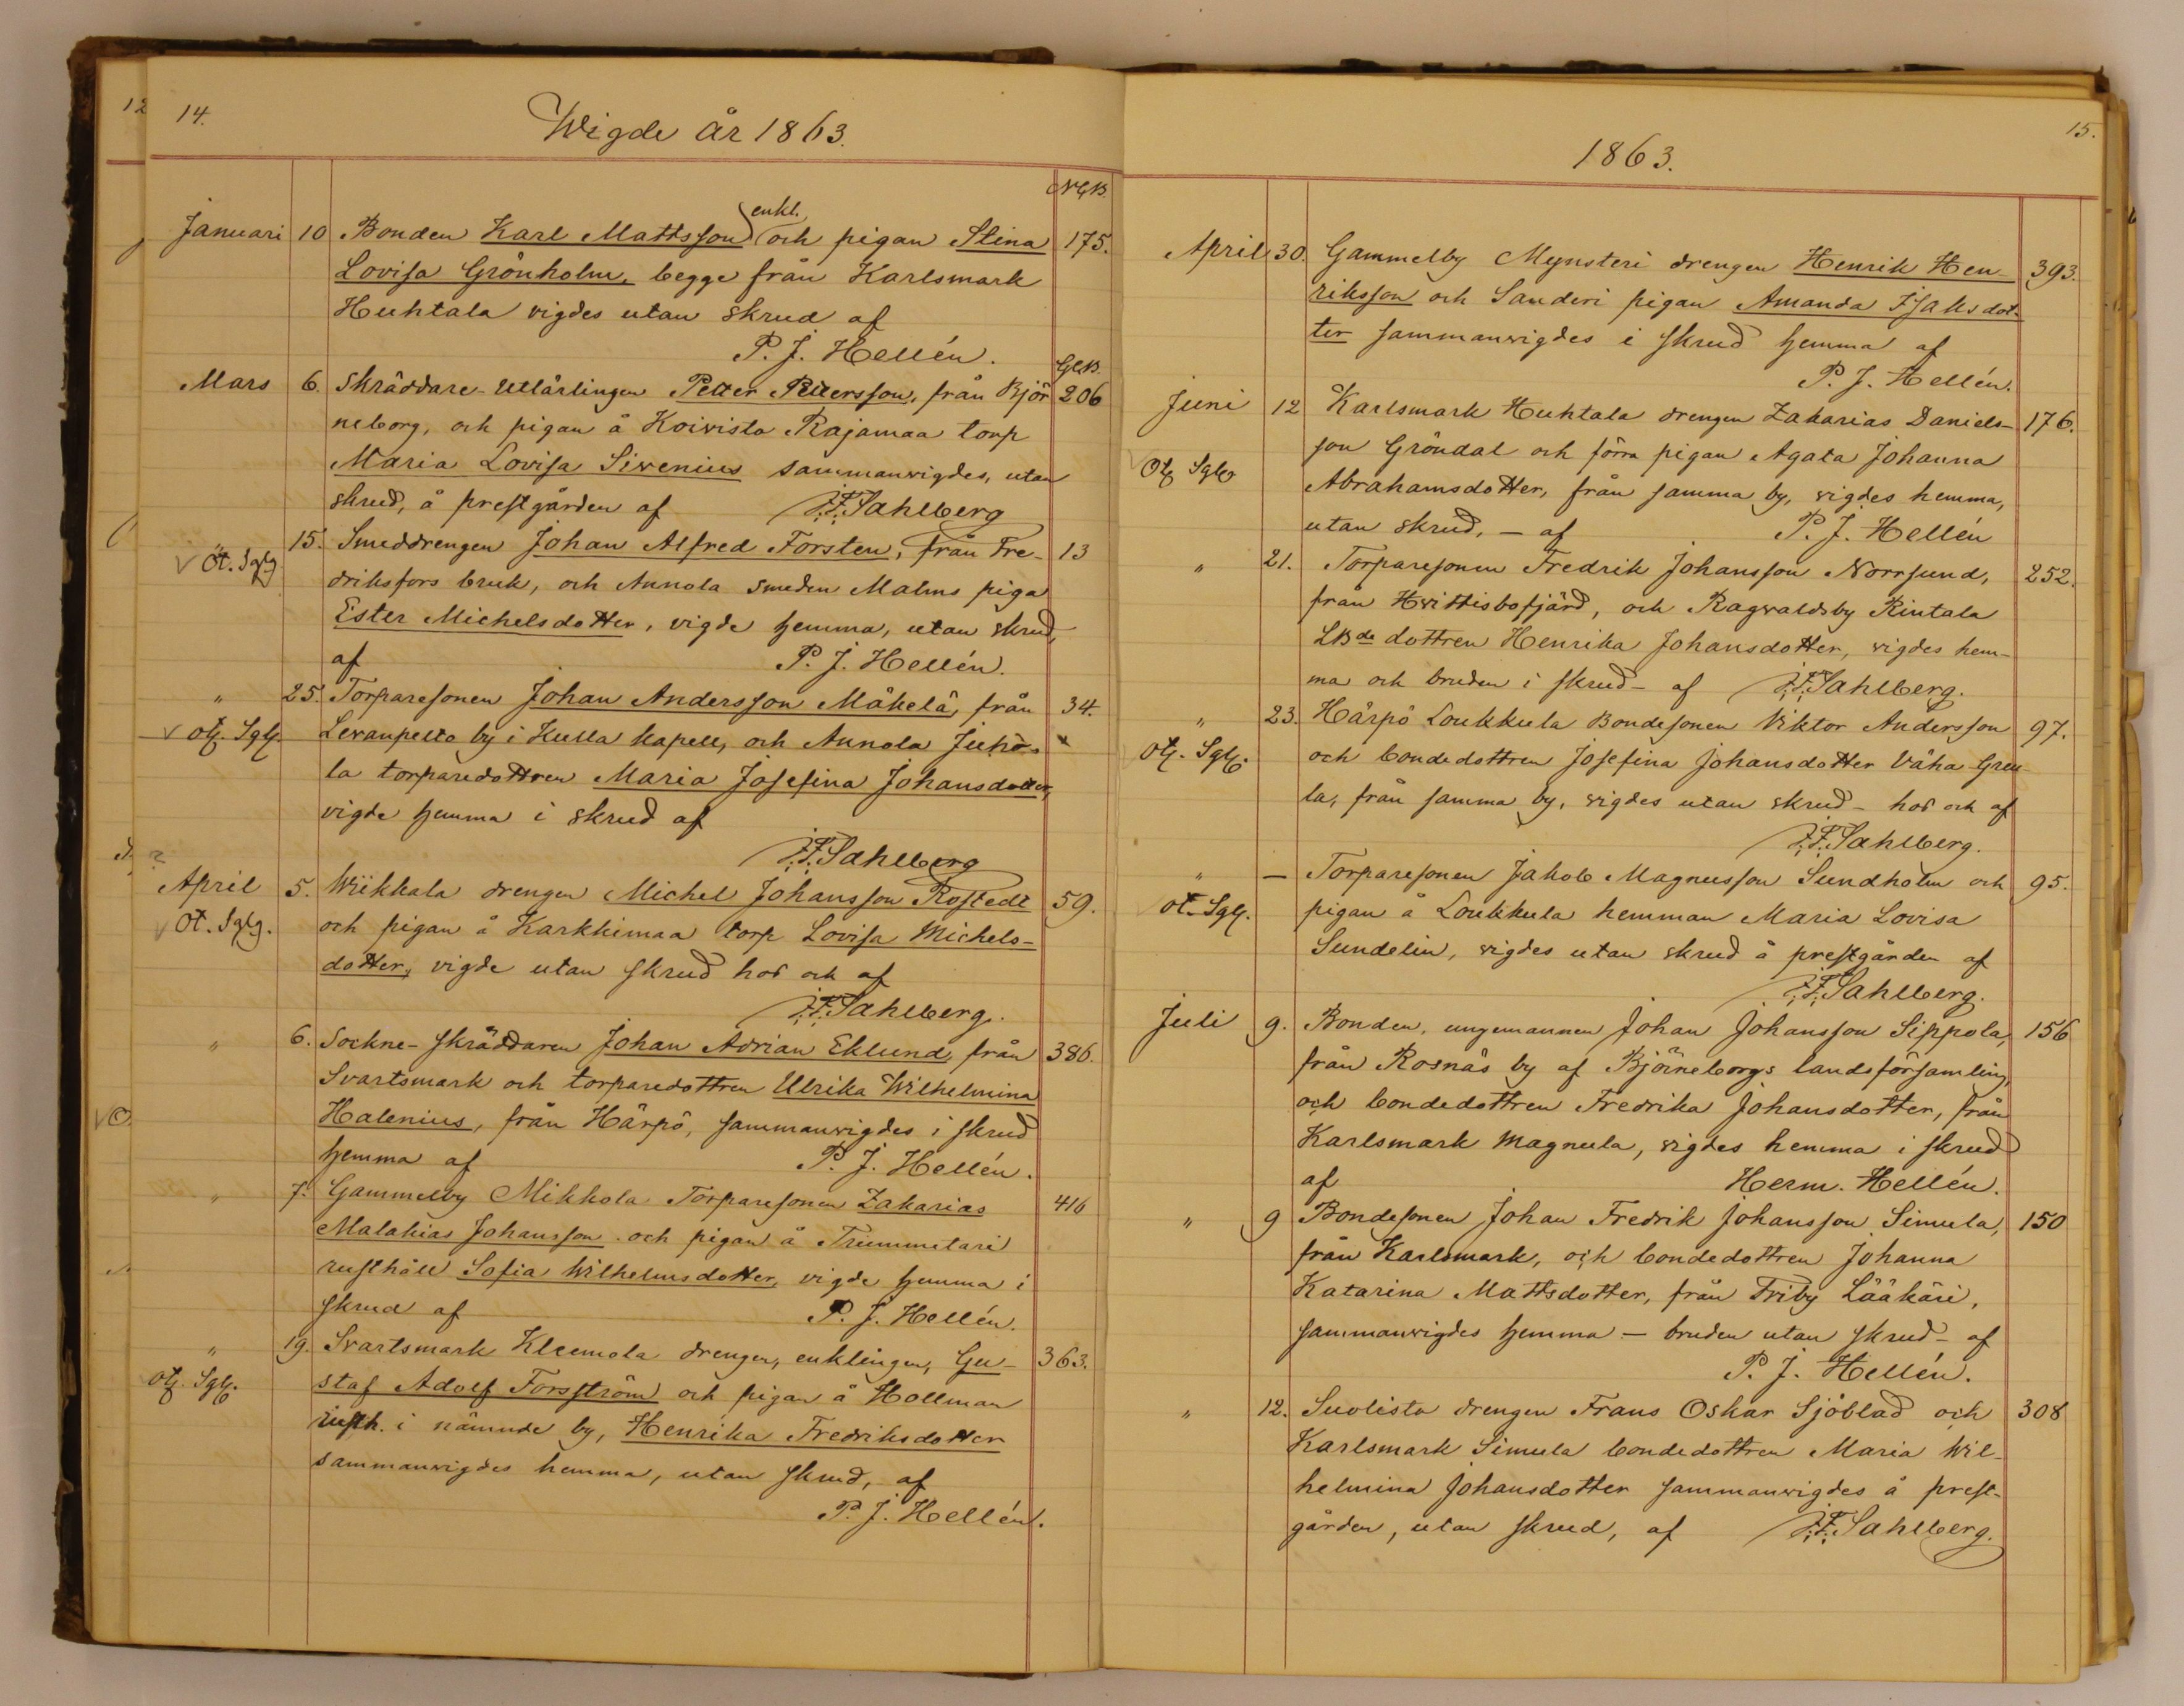 12
14.
Wigde År 1863.
NGB.
enkl.
Januari 10 Bonden Karl Mattsson och pigan Stina 175.
Lovisa Grönholm, begge från Karlsmark
Huhtala vigdes utan skrud af
P. J. Hellén.
GlB.
Mars 6. Skräddare-Utlärlingen Petter Pettersson, från Björ 206
neborg, och pigan å Koivisto Rajamaa torp
Maria Lovisa Sirenius sammanvigdes, utan
skrud, å prestgården af J.F. Sahlberg
" 15. Smeddrengen Johan Alfred Forsten, från Fre- 13
√ Ot. Sglg. driksfors bruk, och Annola smeden Malms piga
Ester Michelsdotter, vigde hemma, utan skrud,
af P. J. Hellén.
" 25. Torparesonen Johan Andersson Mäkelä, från 34.
√ Ot. Sglg. Levanpelto by i Kulla kapell, och Annola Juho-
la torparedottren Maria Josefina Johansdotter,
vigde hemma i skrud af
J.F. Sahlberg
?
April 5. Wiikkala drengen Michel Johansson Rostedt 59.
√ Ot. Sglg. och pigan å Karkkimaa torp Lovisa Michels-
dotter, vigde utan skrud hos och af
J.F. Sahlberg.
" 6. Sockne-skräddaren Johan Adrian Eklund, från 386.
Svartsmark och torparedottren Ulrika Wilhelmina
√ O Halenius, från Härpö, sammanvigdes i skrud
hemma af P. J. Hellén.
" 7. Gammelby Mikkola Torparesonen Zakarias 416
Malakias Johansson och pigan å Trummetari
rusthåll Sofia Wilhelmsdotter, vigde hemma i
skrud af P. J. Hellén.
" 19. Svartsmark Kleemola drengen, enklingen, Gu- 363.
Ot. Sglg. staf Adolf Forsström och pigan å Hollman
rusth. i nämnde by, Henrika Fredriksdotter
sammanvigdes hemma, utan skrud, af
P. J. Hellén.
15.
1863.
April 30. Gammelby Mynsteri drengen Henrik Hen- 393.
riksson och Sanderi pigan Amanda Isaksdot-
ter sammanvigdes i skrud hemma af
P. J. Hellén.
Juni 12 Karlsmark Huhtala drengen Zakarias Daniels- 176.
Ot. Sglg. son Gröndal och förra pigan Agata Johanna
Abrahamsdotter, från samma by, vigdes hemma,
utan skrud, - af P. J. Hellén
" 21. Torparesonen Fredrik Johansson Norrsund, 252.
från Hvittisbofjärd, och Ragvaldsby Rintala
LBde dottren Henrika Johansdotter, vigdes hem-
ma och bruden i skrud - af J.F. Sahlberg.
" 23. Härpö Loukkula Bondesonen Viktor Andersson 97.
Ot. Sglg. och bondedottren Josefina Johansdotter Vähä Greu
la, från samma by, vigdes utan skrud - hos och af
J.F. Sahlberg.
" - Torparesonen Jakob Magnusson Sundholm och 95.
Ot. Sglg. pigan å Loukkula hemman Maria Lovisa
Sundelin, vigdes utan skrud å prestgården af
J.F. Sahlberg.
Juli 9. Bonden, ungemannen Johan Johansson Sippola, 156
från Rosnäs by af Björneborgs landsförsamling,
och bondedottren Fredrika Johansdotter, från
Karlsmark Magnula, vigdes hemma i skrud
af Herm. Hellén.
" 9 Bondesonen Johan Fredrik Johansson Simula, 150
från Karlsmark, och bondedottren Johanna
Katarina Mattsdotter, från Friby Lääkäri,
sammanvigdes hemma - bruden utan skrud - af
P. J. Hellén.
" 12. Suolisto drengen Frans Oskar Sjöblad och 308
Karlsmark Simula bondedottren Maria Wil-
helmina Johansdotter sammanvigdes å prest-
gården, utan skrud, af J.F. Sahlberg.